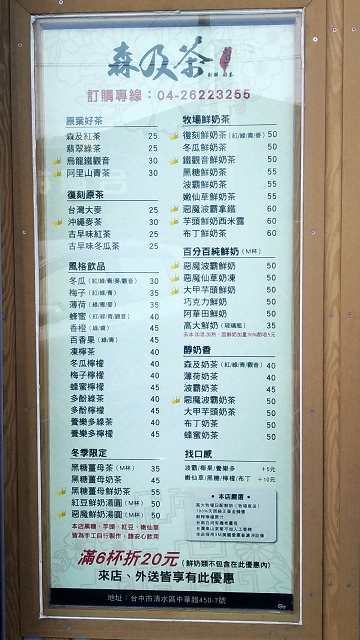 森及茶
訂購專線：04-26223255
原葉好茶
森及紅茶 25
翡翠綠茶 25
烏龍鐵觀音 30
阿里山青茶 30
復刻原茶
台灣大麥 25
沖繩麥茶 30
古早味紅茶 25
古早味冬瓜茶 25
風格飲品
冬瓜(紅/綠/青/麥/觀音) 30
梅子(紅/綠/青) 35
薄荷(綠/青/麥) 35
蜂蜜(紅/綠/青/觀音) 40
香橙(綠/青) 45
百香果(綠/青) 45
凍檸茶 40
冬瓜檸檬 40
梅子檸檬 40
蜂蜜檸檬 45
多酚綠茶 40
多酚檸檬 45
養樂多綠茶 40
養樂多檸檬 45
冬季限定
黑糖薑母茶(M杯) 35
黑糖薑母奶茶 45
黑糖薑母鮮奶茶 55
紅豆鮮奶湯圓(M杯) 50
惡魔鮮奶湯圓(M杯) 50
本店黑糖、芋頭、紅豆、嫩仙草
皆為手工自行製作，請安心飲用
牧場鮮奶茶
復刻鮮奶茶(紅/綠/青/麥) 50
冬瓜鮮奶茶 50
鐵觀音鮮奶茶 50
黑糖鮮奶茶 55
波霸鮮奶茶 55
嫩仙草鮮奶茶 55
惡魔波霸拿鐵 60
芋頭鮮奶西米露 60
布丁鮮奶茶 60
百分百純鮮奶(M杯)
惡魔波霸鮮奶 50
惡魔仙草奶凍 50
大甲芋頭鮮奶 50
巧克力鮮奶 50
阿華田鮮奶 50
高大鮮奶(玻璃瓶) 35
醇奶香
森及奶茶(紅/綠/青/觀音) 40
薄荷奶茶 40
波霸奶茶 45
惡魔波霸奶茶 50
大甲芋頭奶茶 50
布丁奶茶 50
蜂蜜奶茶 50
找口感
波霸/椰果/養樂多 +5元
嫩仙草/黑糖/檸檬/布丁 +10元
本店嚴選
滿6杯折20元(鮮奶類不包含在此優惠內)
來店、外送皆享有此優惠
地址：台中市清水區中華路450-7號